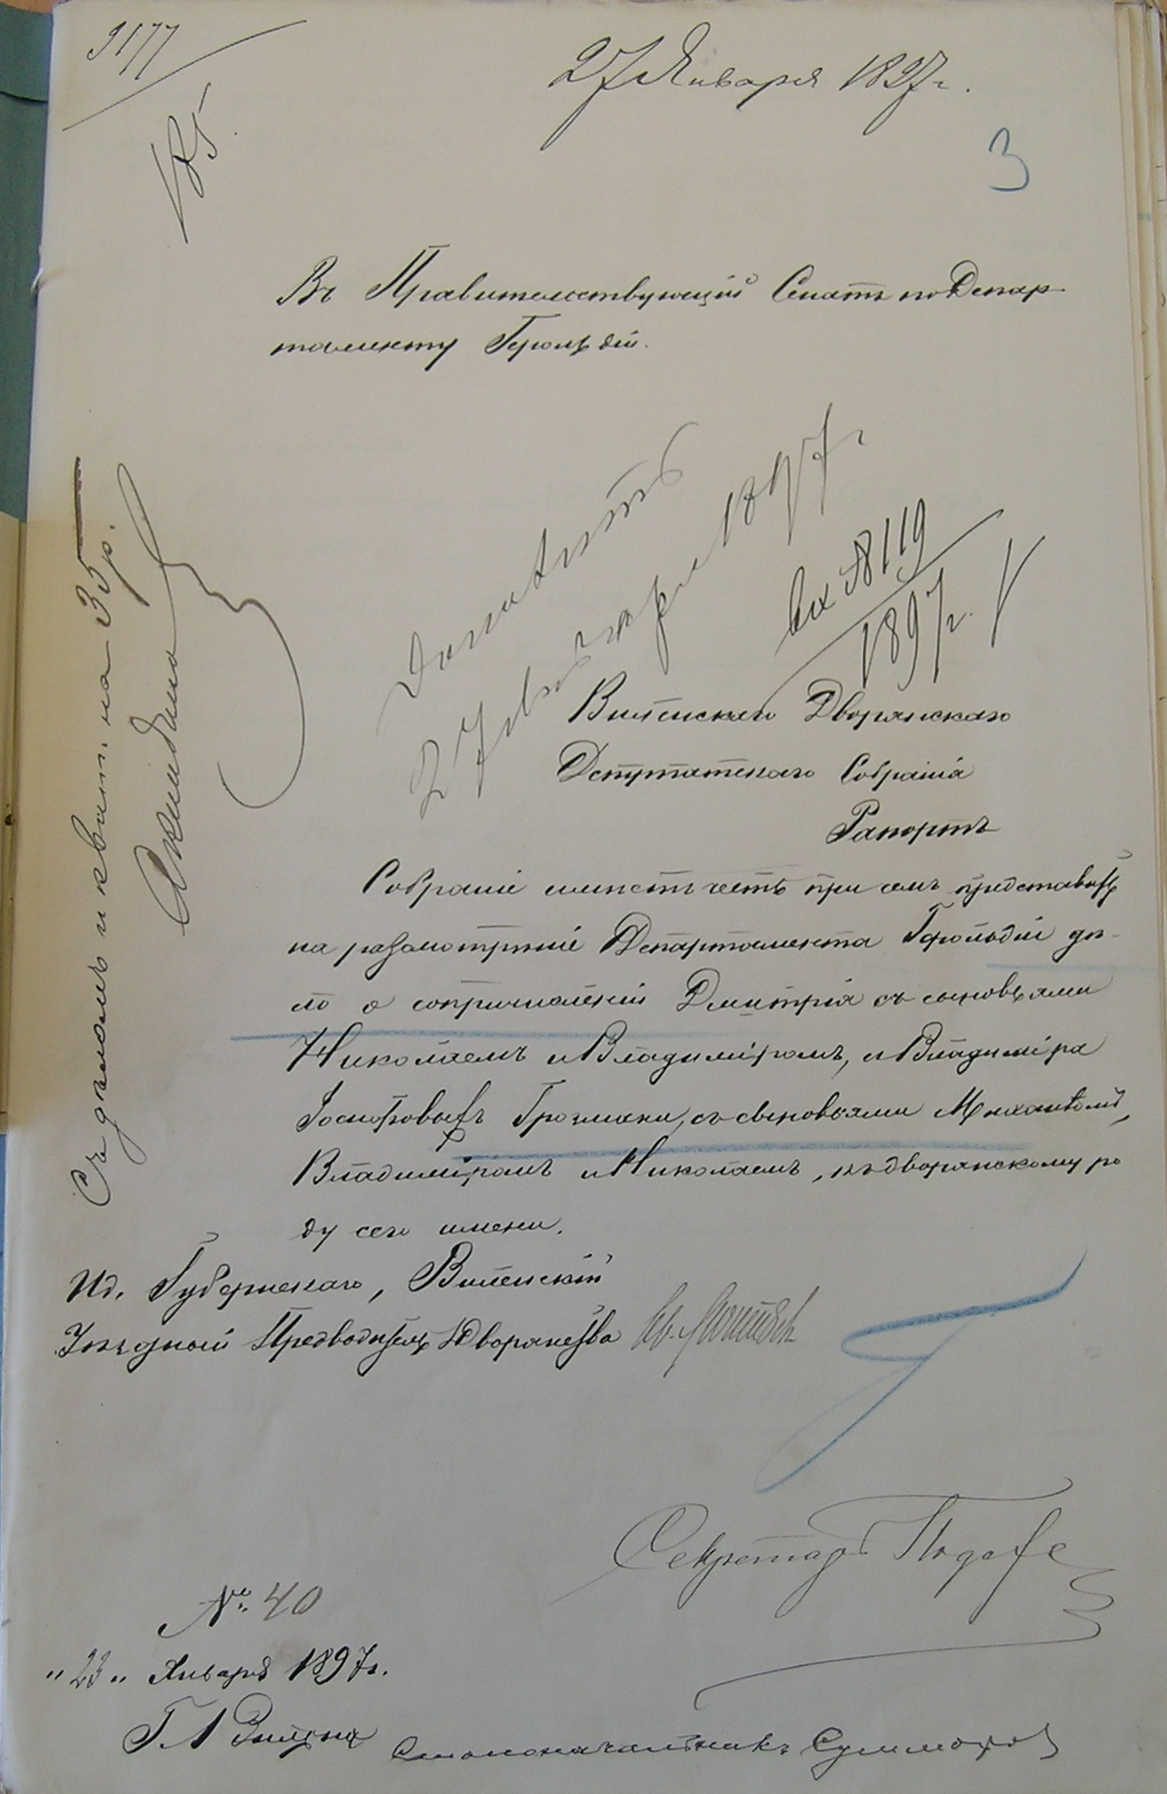 3177
27 Января 1897 г.
3
Въ Правительствующій Сенатъ по Депар-
таменту Герольдіи.
Доложить
27 января 1897 г.
Вх № 119
1897 г.
Съ дѣломъ и квит. на 35 р.
Виленскаго Дворянскаго
Депутатскаго Собранія
Рапортъ
Собраніе имѣетъ честь при семъ представить
на разсмотрѣніе Департамента Герольдіи дѣ-
ло о сопричисленіи Дмитрія съ сыновьями
Николаемъ и Владиміромъ, и Владиміра
Іосифовыхъ съ сыновьями Михаиломъ,
Владиміромъ и Николаемъ, къ дворянскому ро
ду сего имени.
Ид. Губернскаго, Виленскій
Уѣздный Предводитель Дворянства
Секретарь
№ 40
„23„ Января 1897 г.
Г. Вильна
Столоначальникъ